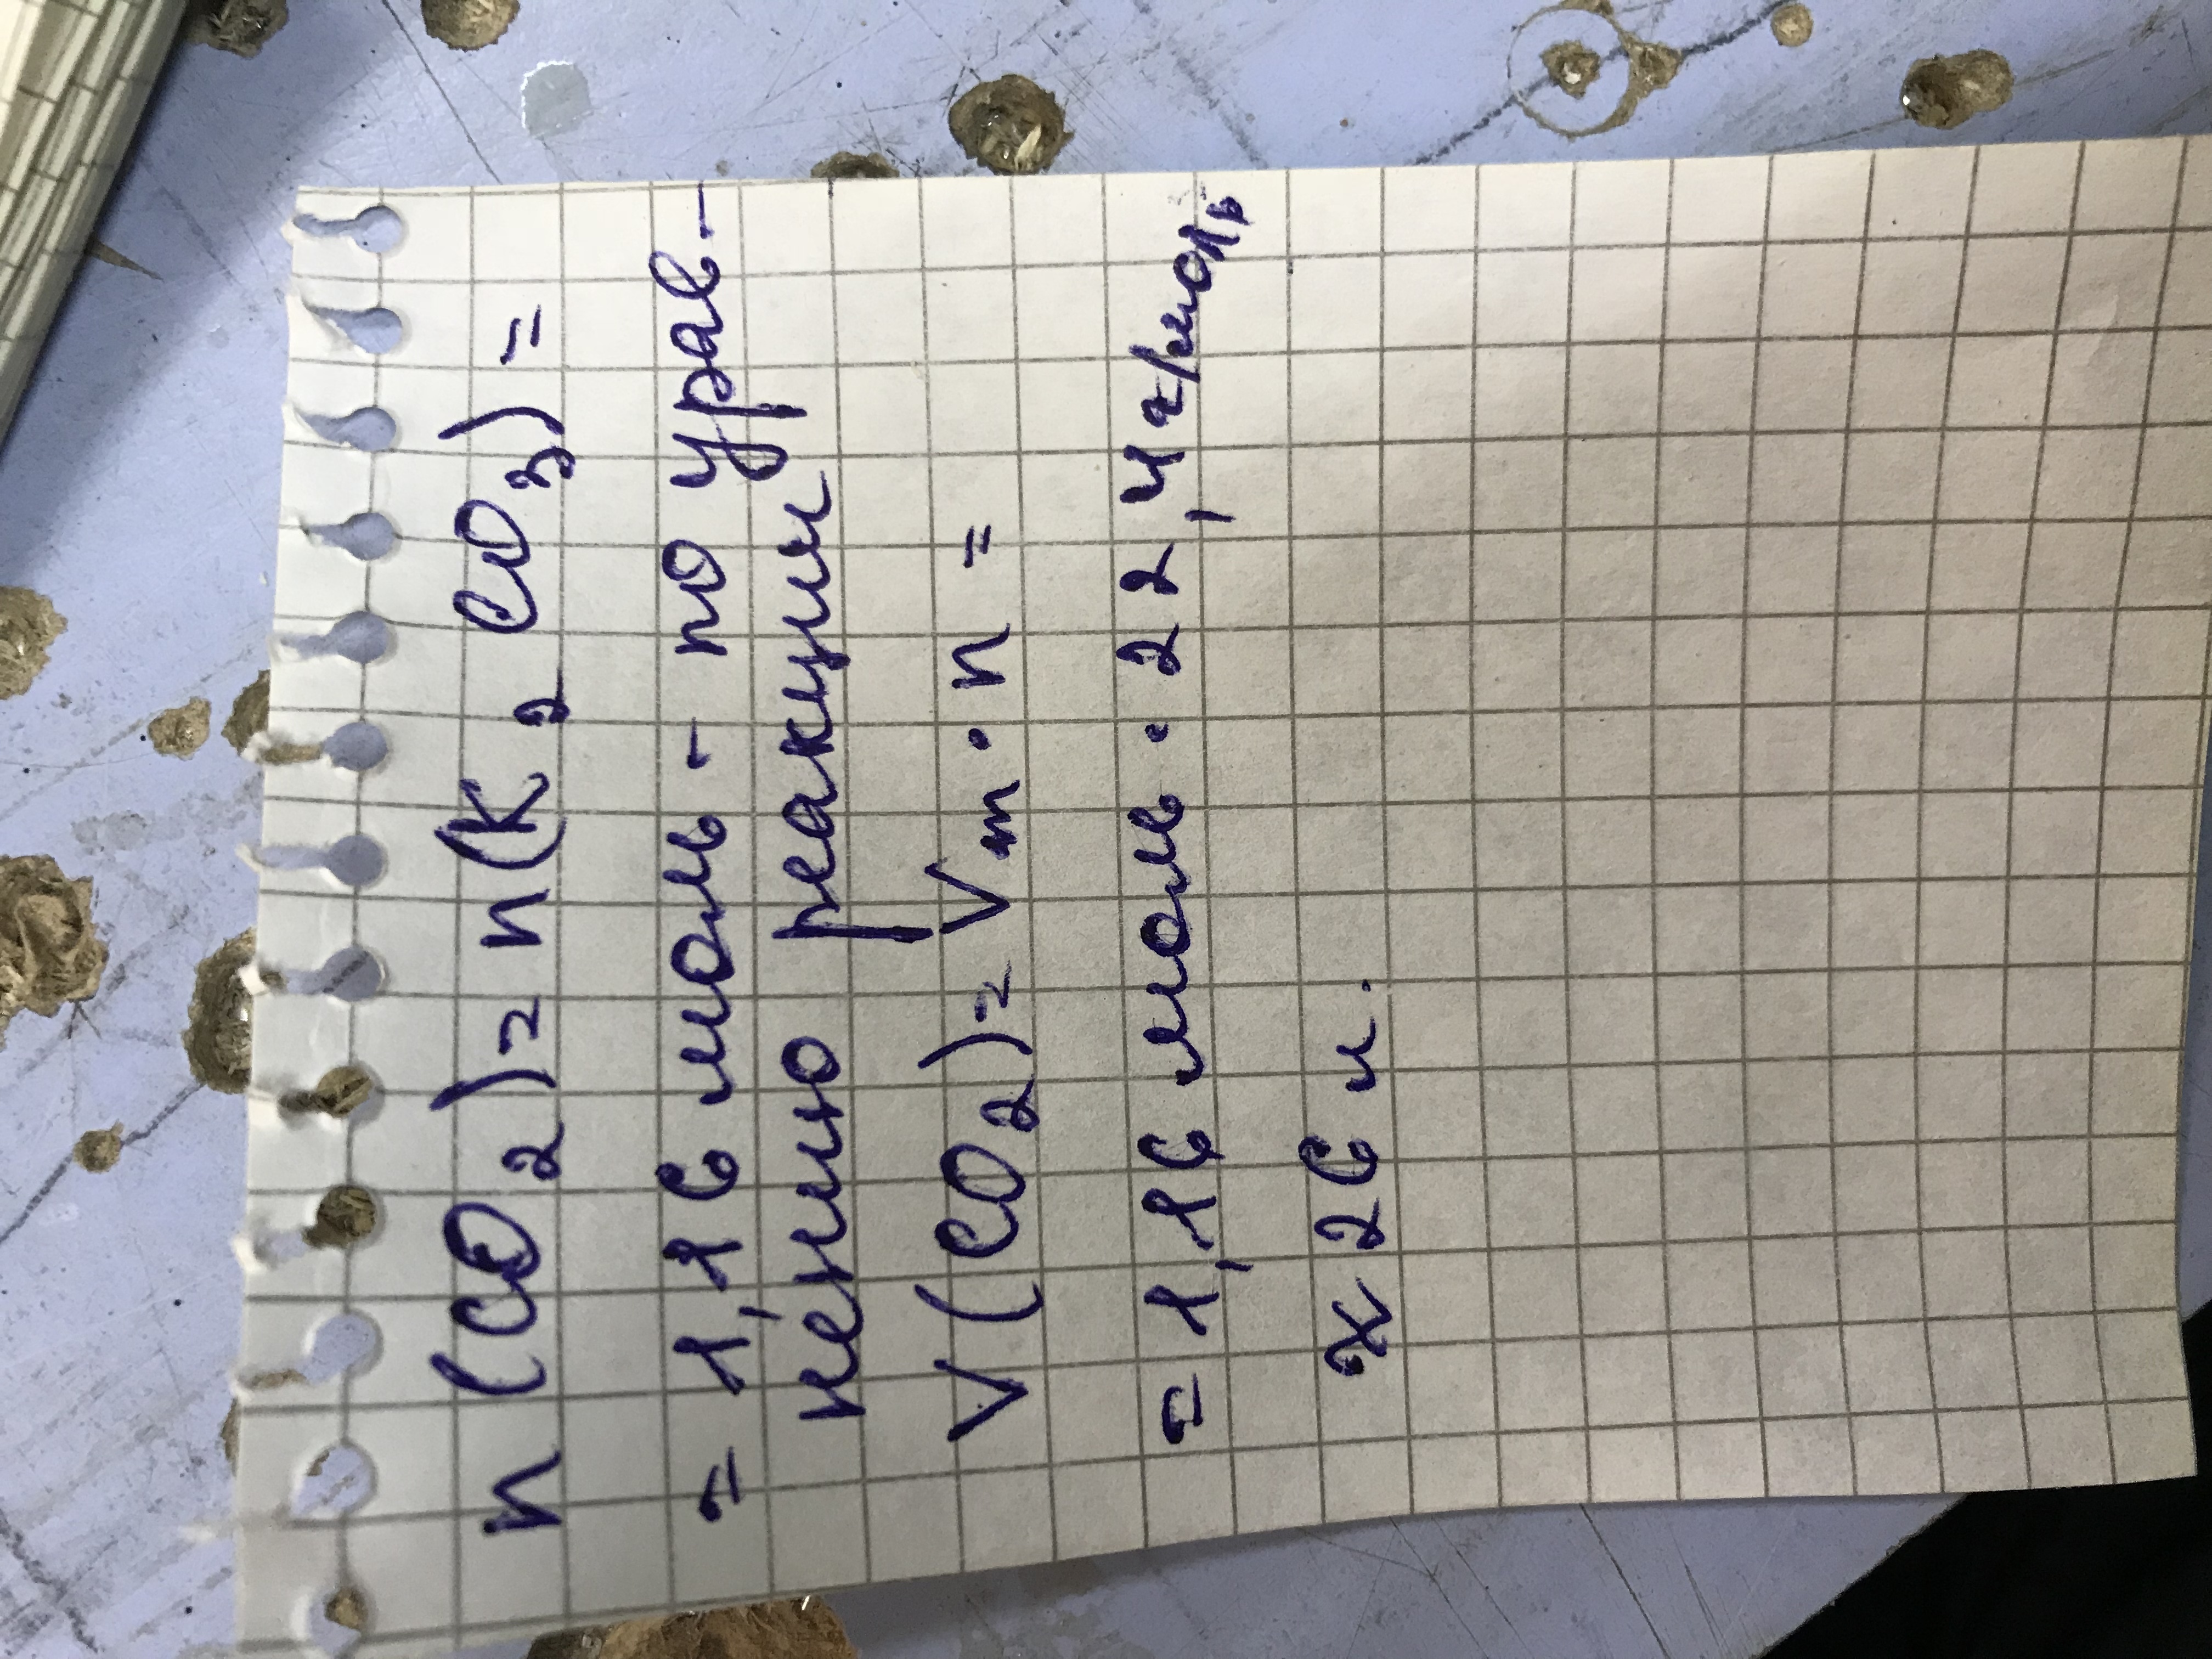 n (CO₂) = n(K₂CO₃) =
= 1,16 моль - по урав-
нению реакции
V (CO₂) = Vm · n =
= 1,16 моль · 22,4 г/моль
≈ 26 л.